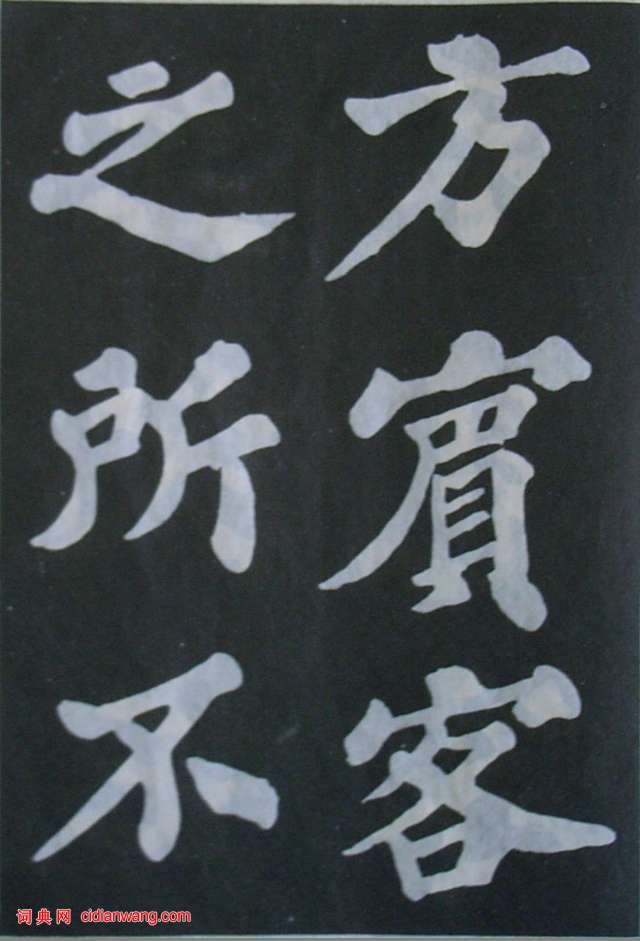 方賔客
之所不
词典网 cidianwang.com